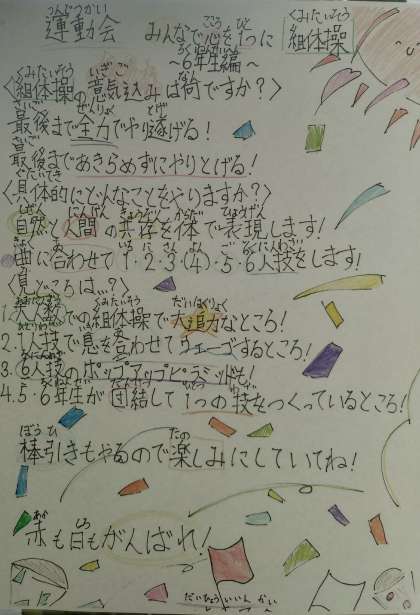 運動会 みんなで心を1つに 組体操
〜6年生編〜
〈組体操の意気込みは何ですか？〉
最後まで全力でやり遂げる！
最後まであきらめずにやりとげる！
〈具体的にどんなことをやりますか？〉
自然と人間の共存を体で表現します！
曲に合わせて1・2・3・(4)・5・6人技をします！
〈見どころは…？〉
1.大人数での組体操で大迫力なところ！
2.1人技で息を合わせてウェーブするところ！
3.6人技のポップアップピラミッドも！
4.5・6年生が団結して1つの技をつくっているところ！
棒引きもやるので楽しみにしていてね！
赤も白もがんばれ！
だいひょういいんかい